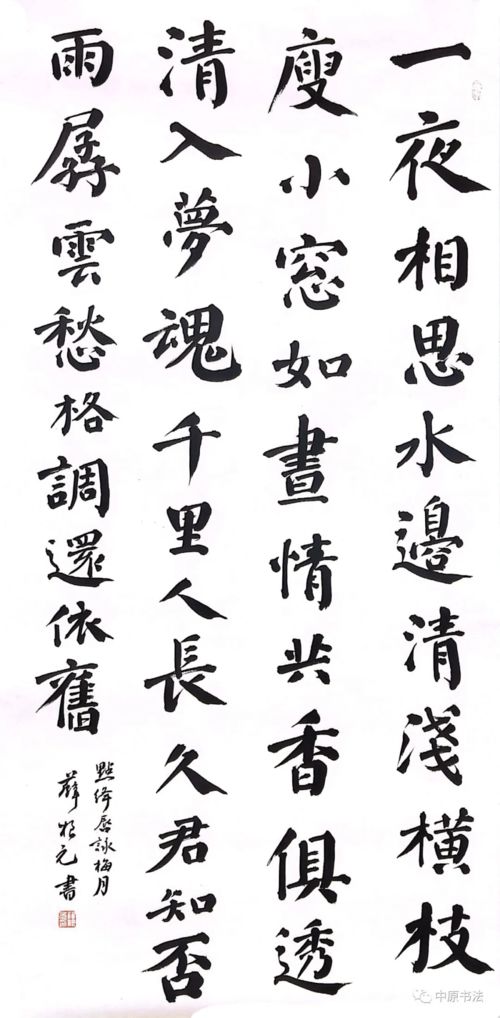 一夜相思水邊清淺橫枝
瘦小窓如晝情共香俱透
清入夢魂千里人長久君知否
雨孱雲愁格調還依舊
點絳唇詠梅月
薛 元書
中原书法